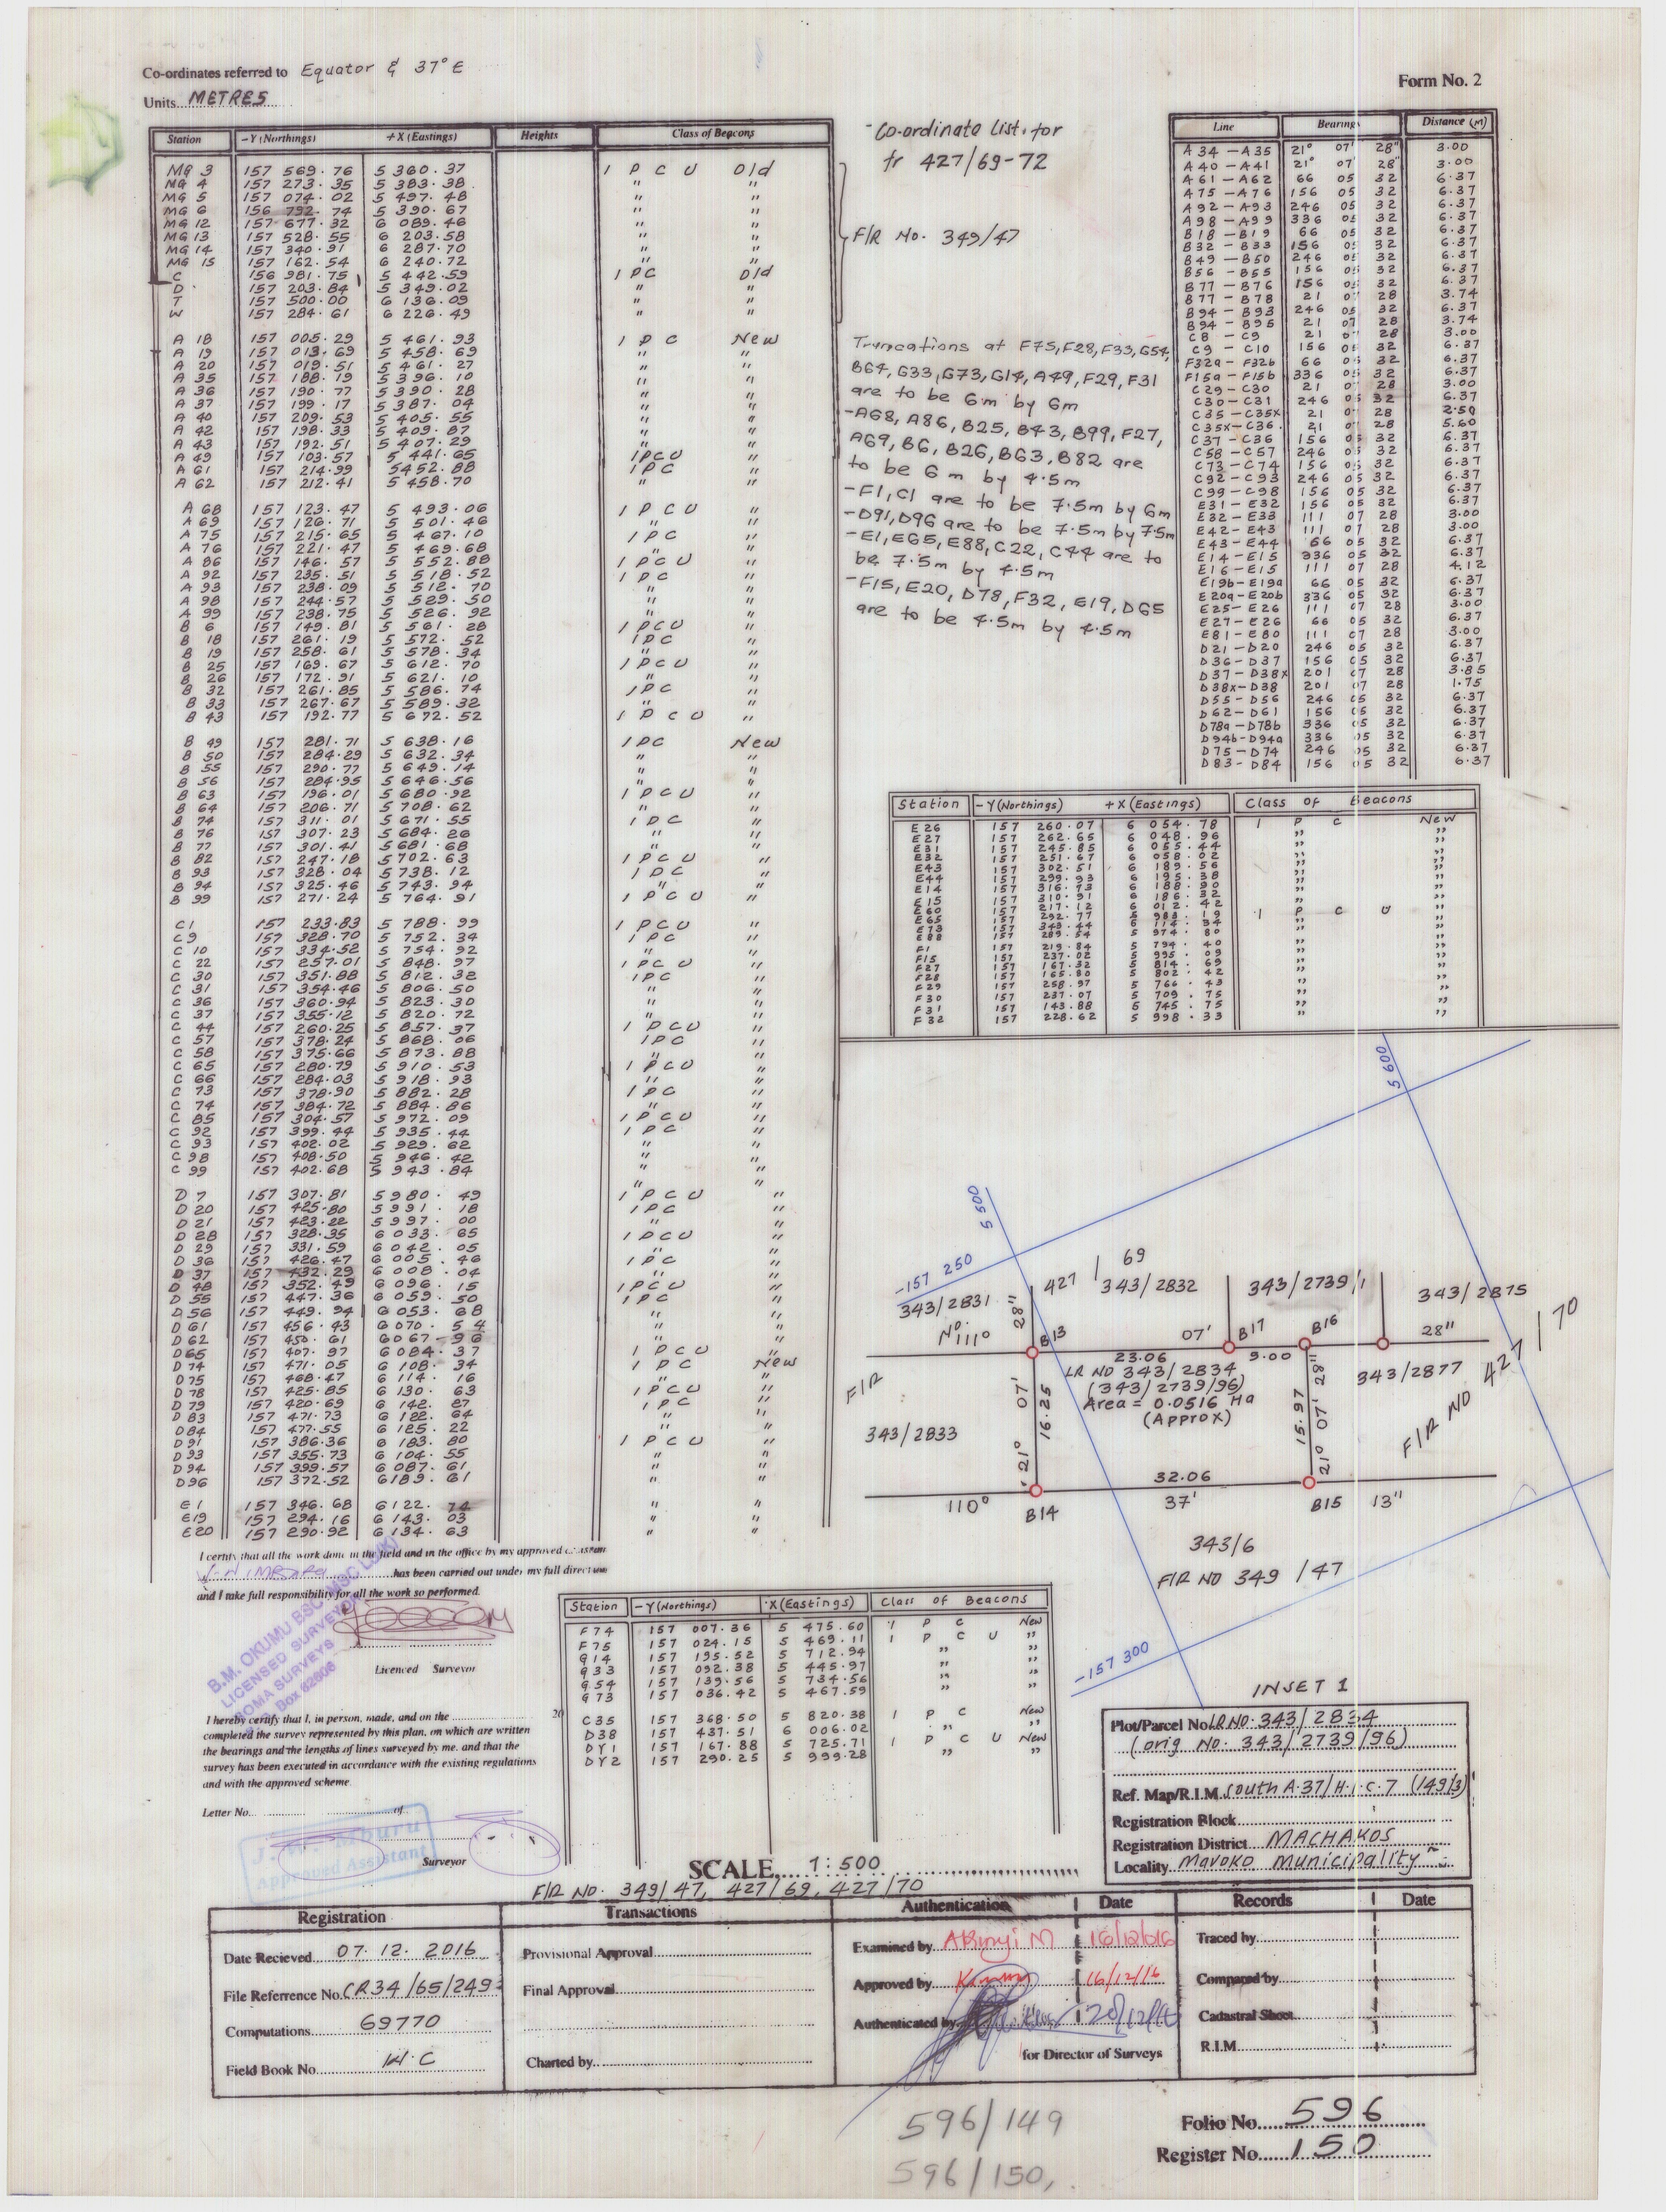 Co-ordinates referred to Equator & 37° E
Form No. 2
Units...METRES
Station -Y (Northings) +X (Eastings) Heights Class of Beacons
MG 3 157 569.76 5 360.37 I P C U Old
MG 4 157 273.35 5 383.38 " "
MG 5 157 074.02 5 497.48 " "
MG 6 156 792.74 5 390.67 " "
MG 12 157 677.32 6 089.46 " "
MG 13 157 528.55 6 203.58 " "
MG 14 157 340.91 6 287.70 " "
MG 15 157 162.54 6 240.72 " "
C 156 981.75 5 442.59 I PC Old
D 157 203.84 5 349.02 " "
T 157 500.00 6 136.09 " "
W 157 284.61 6 226.49 " "
A 18 157 005.29 5 461.93 I P C New
A 19 157 013.69 5 458.69 " "
A 20 157 019.51 5 461.27 " "
A 35 157 188.19 5 396.10 " "
A 36 157 190.77 5 390.28 " "
A 37 157 199.17 5 387.04 " "
A 40 157 209.53 5 405.55 " "
A 42 157 198.33 5 409.87 " "
A 43 157 192.51 5 407.29 " "
A 49 157 103.57 5 441.65 IPCU "
A 61 157 214.99 5452.88 IPC "
A 62 157 212.41 5 458.70 " "
A 68 157 123.47 5 493.06 I P C U "
A 69 157 126.71 5 501.46 " "
A 75 157 215.65 5 467.10 I PC "
A 76 157 221.47 5 469.68 " "
A 86 157 146.57 5 552.88 I P C U "
A 92 157 235.51 5 518.52 I PC "
A 93 157 238.09 5 512.70 " "
A 98 157 244.57 5 529.50 " "
A 99 157 238.75 5 526.92 " "
B 6 157 149.81 5 561.28 I PCU "
B 18 157 261.19 5 572.52 IPC "
B 19 157 258.61 5 578.34 " "
B 25 157 169.67 5 612.70 I PCU "
B 26 157 172.91 5 621.10 " "
B 32 157 261.85 5 586.74 IPC "
B 33 157 267.67 5 589.32 " "
B 43 157 192.77 5 672.52 I P C U "
B 49 157 281.71 5 638.16 IPC New
B 50 157 284.29 5 632.34 " "
B 55 157 290.77 5 649.14 " "
B 56 157 284.95 5 646.56 " "
B 63 157 196.01 5 680.92 I P C U "
B 64 157 206.71 5 708.62 " "
B 74 157 311.01 5 671.55 I P C "
B 76 157 307.23 5 684.26 " "
B 77 157 301.41 5 681.68 " "
B 82 157 247.18 5 702.63 I P C U "
B 93 157 328.04 5 738.12 I P C "
B 94 157 325.46 5 743.94 " "
B 99 157 271.24 5 764.91 I P C U "
C1 157 233.83 5 788.99 I P C U "
C9 157 328.70 5 752.34 I P C "
C 10 157 334.52 5 754.92 " "
C 22 157 257.01 5 848.97 I P C U "
C 30 157 351.88 5 812.32 I P C "
C 31 157 354.46 5 806.50 " "
C 36 157 360.94 5 823.30 " "
C 37 157 355.12 5 820.72 " "
C 44 157 260.25 5 857.37 I P C U "
C 57 157 378.24 5 868.06 I P C "
C 58 157 375.66 5 873.88 " "
C 65 157 280.79 5 910.53 I P C U "
C 66 157 284.03 5 918.93 " "
C 73 157 378.90 5 882.28 I P C "
C 74 157 384.72 5 884.86 " "
C 85 157 304.57 5 972.09 I P C U "
C 92 157 399.44 5 935.44 I P C "
C 93 157 402.02 5 929.62 " "
C 98 157 408.50 5 946.42 " "
C 99 157 402.68 5 943.84 " "
D 7 157 307.81 5 980.49 I P C U "
D 20 157 425.80 5 991.18 I P C "
D 21 157 423.22 5 997.00 " "
D 28 157 328.35 6 033.65 I P C U "
D 29 157 331.59 6 042.05 " "
D 36 157 426.47 6 005.46 I P C "
D 37 157 432.29 6 008.04 " "
D 48 157 352.49 6 096.15 I P C U "
D 55 157 447.36 6 059.50 I P C "
D 56 157 449.94 6 053.68 " "
D 61 157 456.43 6 070.54 " "
D 62 157 450.61 6 067.96 " "
D65 157 407.97 6 084.37 I P C U "
D 74 157 471.05 6 108.34 I P C New
D 75 157 468.47 6 114.16 " "
D 78 157 425.85 6 130.63 I P C U "
D 79 157 420.69 6 142.27 I P C "
D 83 157 471.73 6 122.64 " "
D84 157 477.55 6 125.22 " "
D 91 157 386.36 6 183.80 I P C U "
D 93 157 355.73 6 104.55 " "
D 94 157 399.57 6 087.61 " "
D96 157 372.52 6189.61 " "
E1 157 346.68 6122.74 " "
E19 157 294.16 6 143.03 " "
E20 157 290.92 6 134.63 " "
Co-ordinate List for
fr 427/69-72
F/R No. 349/47
Truncations at F75, F28, F33, G54,
B64, G33, G73, G14, A49, F29, F31
are to be 6m by 6m
-A68, A86, B25, B43, B99, F27,
A69, B6, B26, B63, B82 are
to be 6 m by 4.5m
-F1, C1 are to be 7.5m by 6m
-D91, D96 are to be 7.5m by 7.5m
-E1, E65, E88, C22, C44 are to
be 7.5m by 4.5m
-F15, E20, D78, F32, E19, D65
are to be 4.5m by 4.5m
Line Bearings Distance (M)
A 34 - A35 21° 07' 28" 3.00
A 40 - A41 21° 07' 28" 3.00
A 61 - A62 66 05 32 6.37
A75 - A76 156 05 32 6.37
A92 - A93 246 05 32 6.37
A98 - A99 336 05 32 6.37
B18 - B19 66 05 32 6.37
B32 - B33 156 05 32 6.37
B49 - B50 246 05 32 6.37
B56 - B55 156 05 32 6.37
B77 - B76 156 05 32 6.37
B77 - B78 21 07 28 3.74
B94 - B93 246 05 32 6.37
B94 - B95 21 07 28 3.74
C8 - C9 21 07 28 3.00
C9 - C10 156 05 32 6.37
F32a - F32b 66 05 32 6.37
F15a - F15b 336 05 32 6.37
C29 - C30 21 07 28 3.00
C30 - C31 246 05 32 6.37
C35 - C35x 21 07 28 2.50
C35x - C36 21 07 28 5.60
C37 - C36 156 05 32 6.37
C58 - C57 246 05 32 6.37
C73 - C74 156 05 32 6.37
C92 - C93 246 05 32 6.37
C99 - C98 156 05 32 6.37
E31 - E32 156 05 32 6.37
E32 - E33 111 07 28 3.00
E42 - E43 111 07 28 3.00
E43 - E44 66 05 32 6.37
E14 - E15 336 05 32 6.37
E16 - E15 111 07 28 4.12
E19b - E19a 66 05 32 6.37
E20a - E20b 336 05 32 6.37
E25 - E26 111 07 28 3.00
E27 - E26 66 05 32 6.37
E81 - E80 111 07 28 3.00
D21 - D20 246 05 32 6.37
D36 - D37 156 05 32 6.37
D37 - D38x 201 07 28 3.85
D38x - D38 201 07 28 1.75
D55 - D56 246 05 32 6.37
D62 - D61 156 05 32 6.37
D78a - D78b 336 05 32 6.37
D94b - D94a 336 05 32 6.37
D75 - D74 246 05 32 6.37
D83 - D84 156 05 32 6.37
Station -Y (Northings) +X (Eastings) Class Of Beacons
E26 157 260.07 6 054.78 I P C New
E27 157 262.65 6 048.96 " "
E31 157 245.85 6 055.44 " "
E32 157 251.67 6 058.02 " "
E43 157 302.51 6 189.56 " "
E44 157 299.93 6 195.38 " "
E14 157 316.73 6 188.90 " "
E15 157 310.91 6 186.32 " "
E60 157 217.12 6 012.42 " "
E65 157 292.77 5 983.19 I P C U "
E73 157 349.44 6 114.34 " "
E88 157 289.54 5 974.80 " "
F1 157 219.84 5 794.40 " "
F15 157 237.02 5 995.09 " "
F27 157 167.32 5 814.69 " "
F28 157 165.80 5 802.42 " "
F29 157 258.97 5 766.43 " "
F30 157 237.07 5 709.75 " "
F31 157 143.88 5 745.75 " "
F32 157 228.62 5 998.33 " "
5 600
5 500
-157 250
427 / 69
343/2831 343/2832 343/2739/1 343/2875
No. 111° 28" B13 07' B17 B16 28"
23.06 9.00
F/R
LR NO 343/2834
(343/2739/96)
Area = 0.0516 Ha
(Approx)
343/2877
F/R NO 427/70
343/2833
21° 07' 16.25
15.97 21° 07' 28"
32.06
110° B14 37' B15 13"
343/6
F/R NO 349/47
-157 300
INSET 1
I certify that all the work done in the field and in the office by my approved
has been carried out under my full direction
and I take full responsibility for all the work so performed.
B.M. OKUMU BSC MSC LS(K)
LICENSED SURVEYOR
SURVEYS
Box 62606
Licenced Surveyor
I hereby certify that I, in person, made, and on the 20
completed the survey represented by this plan, on which are written
the bearings and the lengths of lines surveyed by me, and that the
survey has been executed in accordance with the existing regulations
and with the approved scheme.
Letter No. of
Approved Assistant
Surveyor
Station -Y (Northings) X (Eastings) Class of Beacons
F74 157 007.36 5 475.60 I P C New
F75 157 024.15 5 469.11 I P C U "
G14 157 195.52 5 712.94 " "
G33 157 092.38 5 445.97 " "
G54 157 139.56 5 734.56 " "
G73 157 036.42 5 467.59 " "
C35 157 368.50 5 820.38 I P C New
D38 157 437.51 6 006.02 " "
DY1 157 167.88 5 725.71 I P C U New
DY2 157 290.25 5 999.28 " "
Plot/Parcel No LR NO. 343/2834
(orig No. 343/2739/96)
Ref. Map/R.I.M. South A.37/H.I.C.7 (149/3)
Registration Block
Registration District MACHAKOS
Locality Mavoko Municipality
SCALE 1:500
F/R NO. 349/47, 427/69, 427/70
Registration Transactions Authentication Date Records Date
Date Recieved 07.12.2016 Provisional Approval Examined by 16/12/016 Traced by
File Referrence No. CR34/65/249 Final Approval Approved by 16/12/16 Compared by
Computations 69770 Authenticated by 20/12/16 Cadastral Sheet
Field Book No. H.C Charted by for Director of Surveys R.I.M
596/149
596/150,
Folio No. 596
Register No. 150